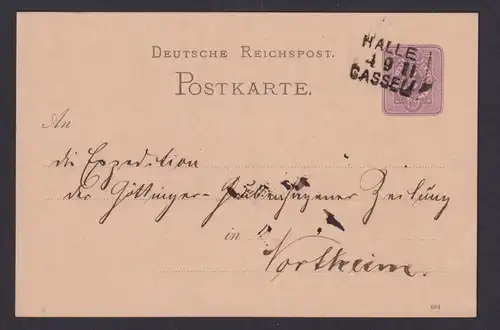 DEUTSCHE REICHSPOST.
POSTKARTE.
HALLE
4 9 11
CASSEL
An
die Expedition
der Göttinger-Grubenhagener Zeitung
in
Northeim.